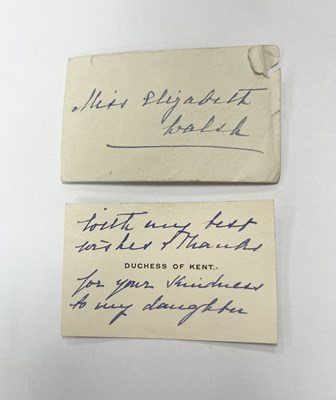 Miss Elizabeth
Walsh
With my best
wishes & thanks
DUCHESS OF KENT.
for your kindness
to my daughter